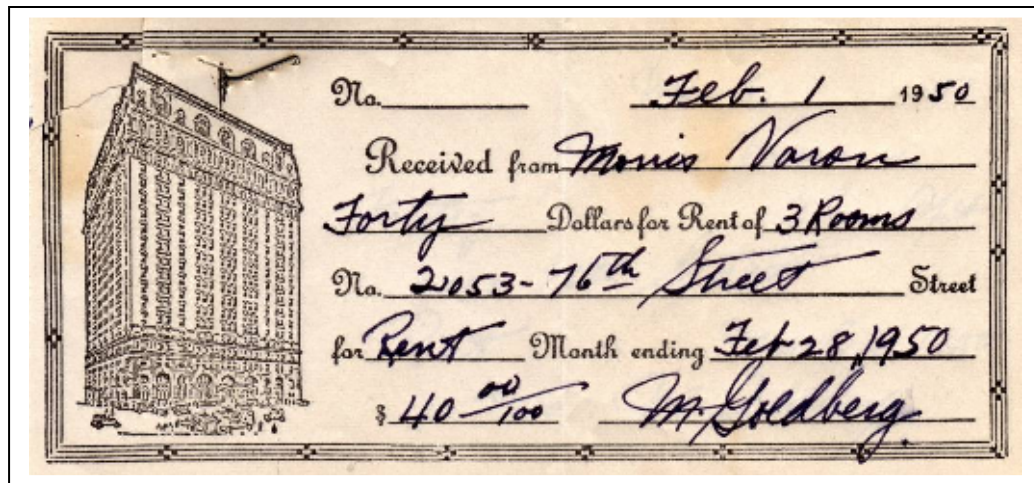 No. Feb. 1 1950
Received from Morris Varon
Forty Dollars for Rent of 3 Rooms
No. 2053-76th Street Street
for Rent Month ending Feb 28, 1950
$ 40 00/100 M. Goldberg